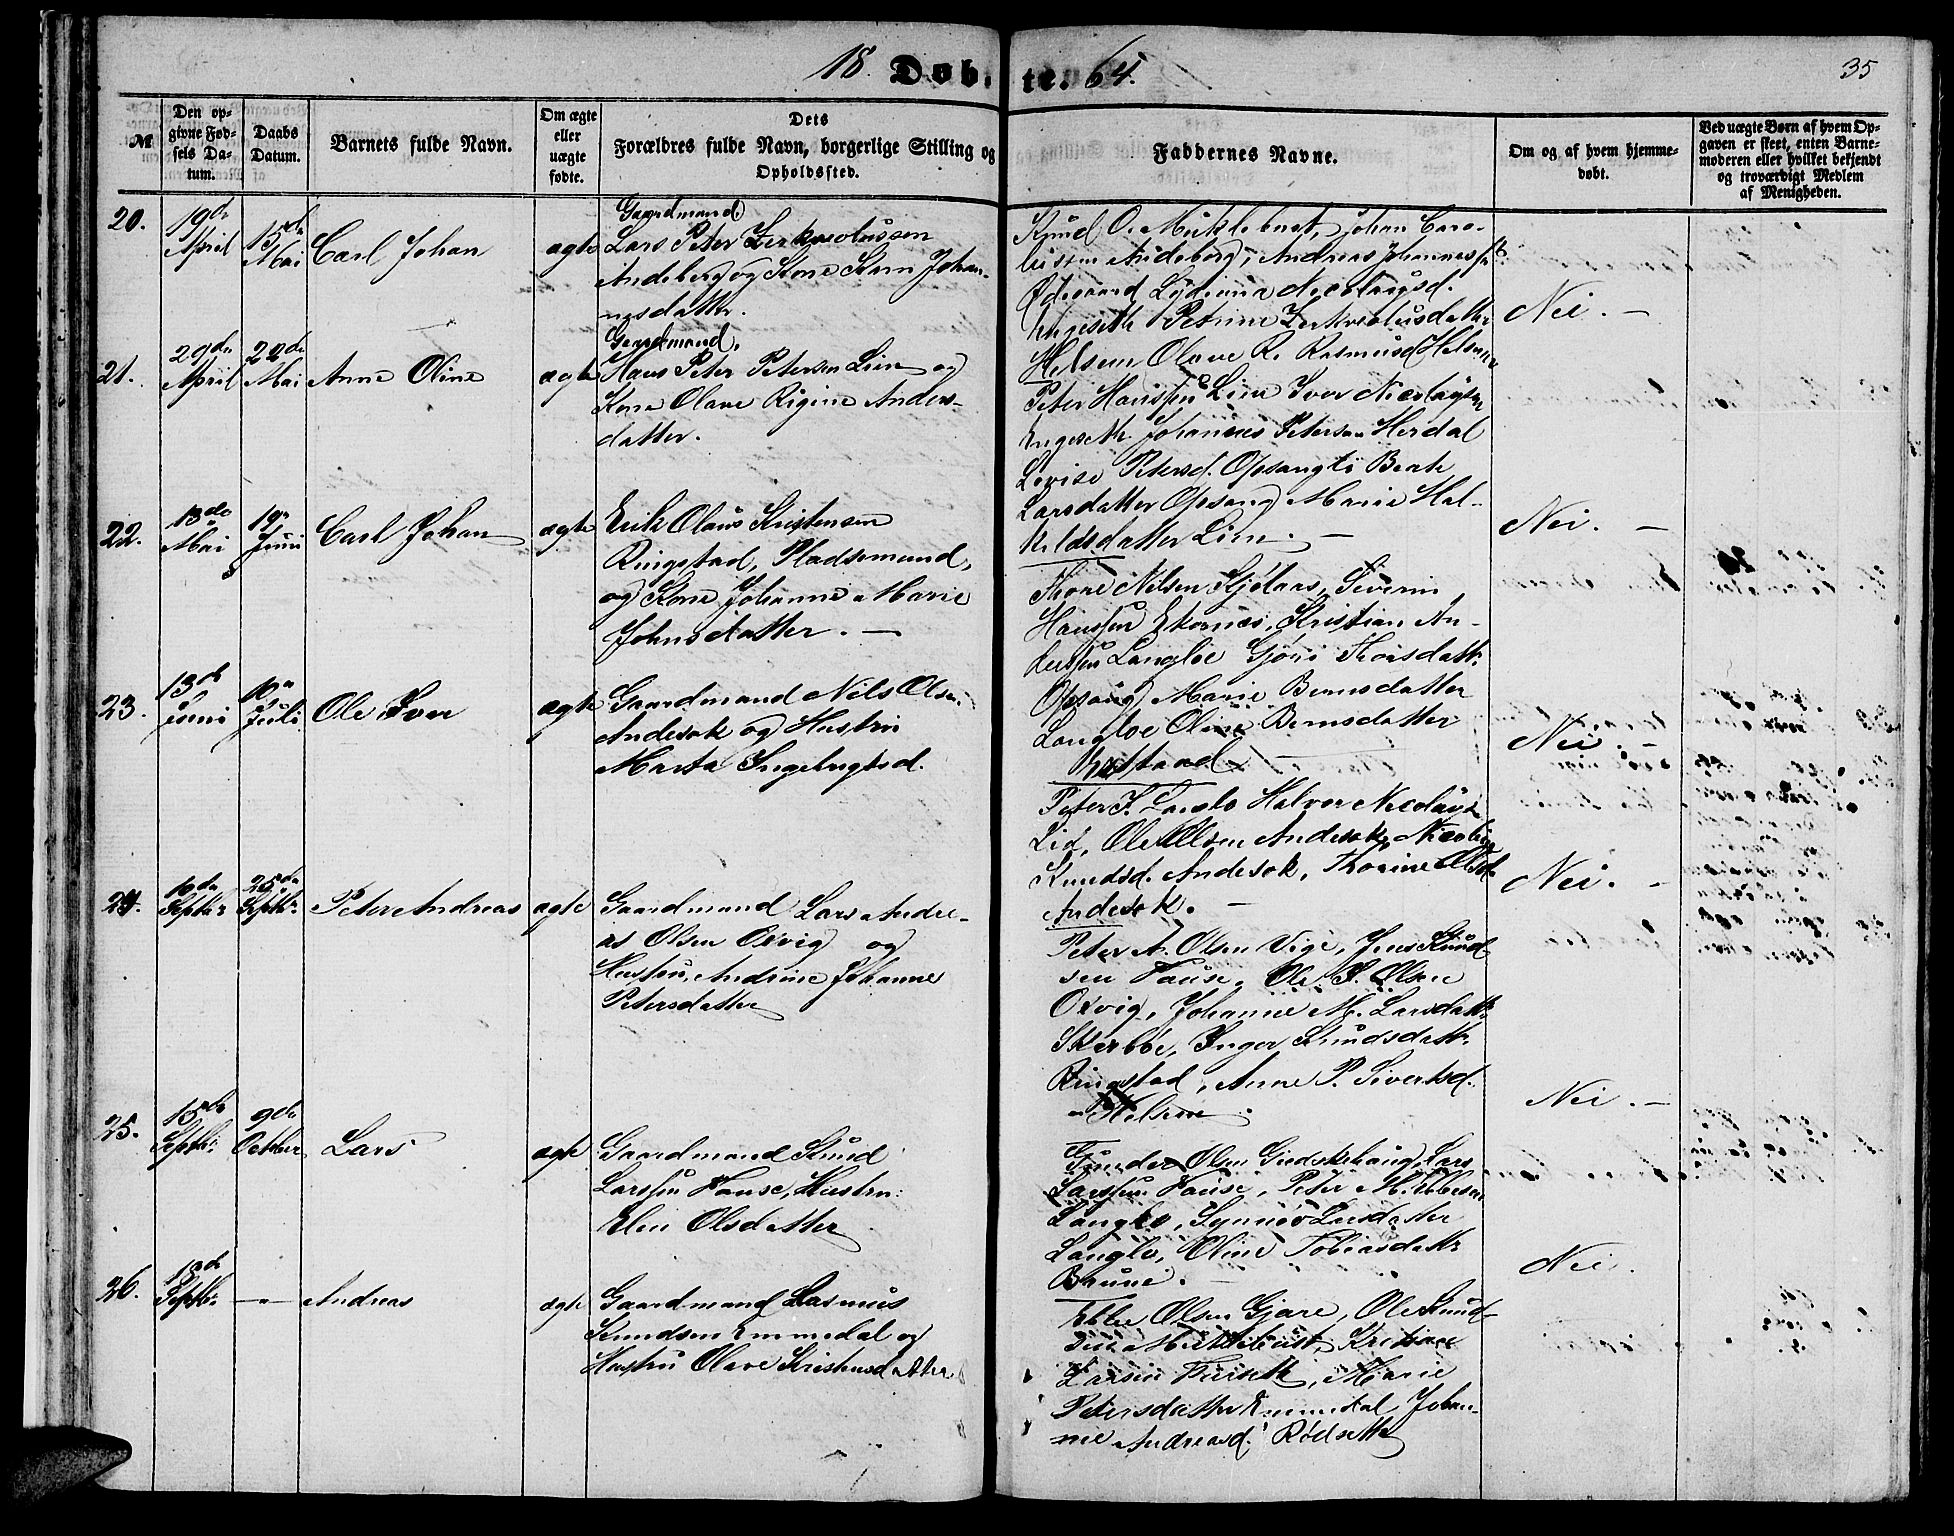 18 Døbte. 64.
35
№
Den opgivne Fødsels Datum.
Daabs Datum.
Barnets fulde Navn.
Om ægte eller uægte fødte.
Dets Forældres fulde Navn, borgerlige Stilling og Opholdssted.
Faddernes Navne.
Om og af hvem hjemmedøbt.
Ved uægte Børn af hvem Opgaven er skeet, enten Barnemoderen eller hvilket bekjendt og troværdigt Medlem af Menigheden.
20.
19de April
15de Mai
Carl Johan
ægte
Gaardmand
Lars Peter
Andeberg og Kone Johan-
nesdatter.
Knud O. Micklebust, Johan Caro-
liussen Andeberg, Andreas Johanness.
Ødegaard
Engeseth Petrine
Helsem Olave R. Rasmusd Helsem
Nei. —
21.
29de April
22de Mai
Anne Oline
ægte
Gaardmand,
Hans Peter Petersen Lien og
Kone Olave Rigine Anders-
datter.
Peter Hanssen Lien Iver Nicolaysen
Engeseth Johannes Petersen Herdal
Lovise Petersd. Opsanglö Beate
Larsdatter Opsang Marie Hal-
keldsdatter Lien. —
Nei. —
22.
13de Mai
19de Juni
Carl Johan
ægte
Erik Olaus Kristensen
Ringstad, Pladsemand,
og Kone Johanne Marie
Johnsdatter. —
Thore Nilsen Severin
Hanssen Ekornæs, Kristian An-
derssen Langløe Gjøri
Opsang Marie Berntsdatter
Langløe Oline Berntsdatter
Nei. —
23.
13de Juni
10de Juli
Ole Iver
ægte
Gaardmand Nils Olsen
Andesok og Hustru
Marta Ingebrigtsd.
Peter J. Langlo Halvor Nicolays.
Lid, Ole Olsen Andesok,
Knudsd. Andesok, Thorine Olsd.
Andesok. —
Nei. —
24.
25de Septbr.
Peter Andreas
ægte
Gaardmand Lars Andre-
as Olsen Overvig og
Hustru, Andrine Johanne
Petersdatter
Peter A. Olsen Vige, Jens Knud-
sen Hause, Ole S. Olsen
Johanne M. Larsdatt.
Skarbøe, Inger Knudsdatt.
Ringstad, Anne P. Sivertsd.
Helsem.
Nei. —
25.
15de Septbr.
9de October
Lars
ægte
Gaardmand Knud
Larssen Hause, Hustru:
Elen Olsdatter
Olsen Gudskehaug, Lars
Larssen Hause, Peter M. Ebbesen
Langlo, Synnøv Larsdatter
Langlo, Oline Tobiasdattr
Braune. —
Nei.
26.
Septbr.
— " —
Andreas
ægte
Gaardmand Rasmus
Knudsen Emmedal og
Hustru Olave Kristensdatter
Ebbe Olsen Gjære, Ole Knud-
sen Micklebust,
Larsen Furseth, Marie
Petersdatter Emmedal, Johan-
ne Andreasd. Rødsette